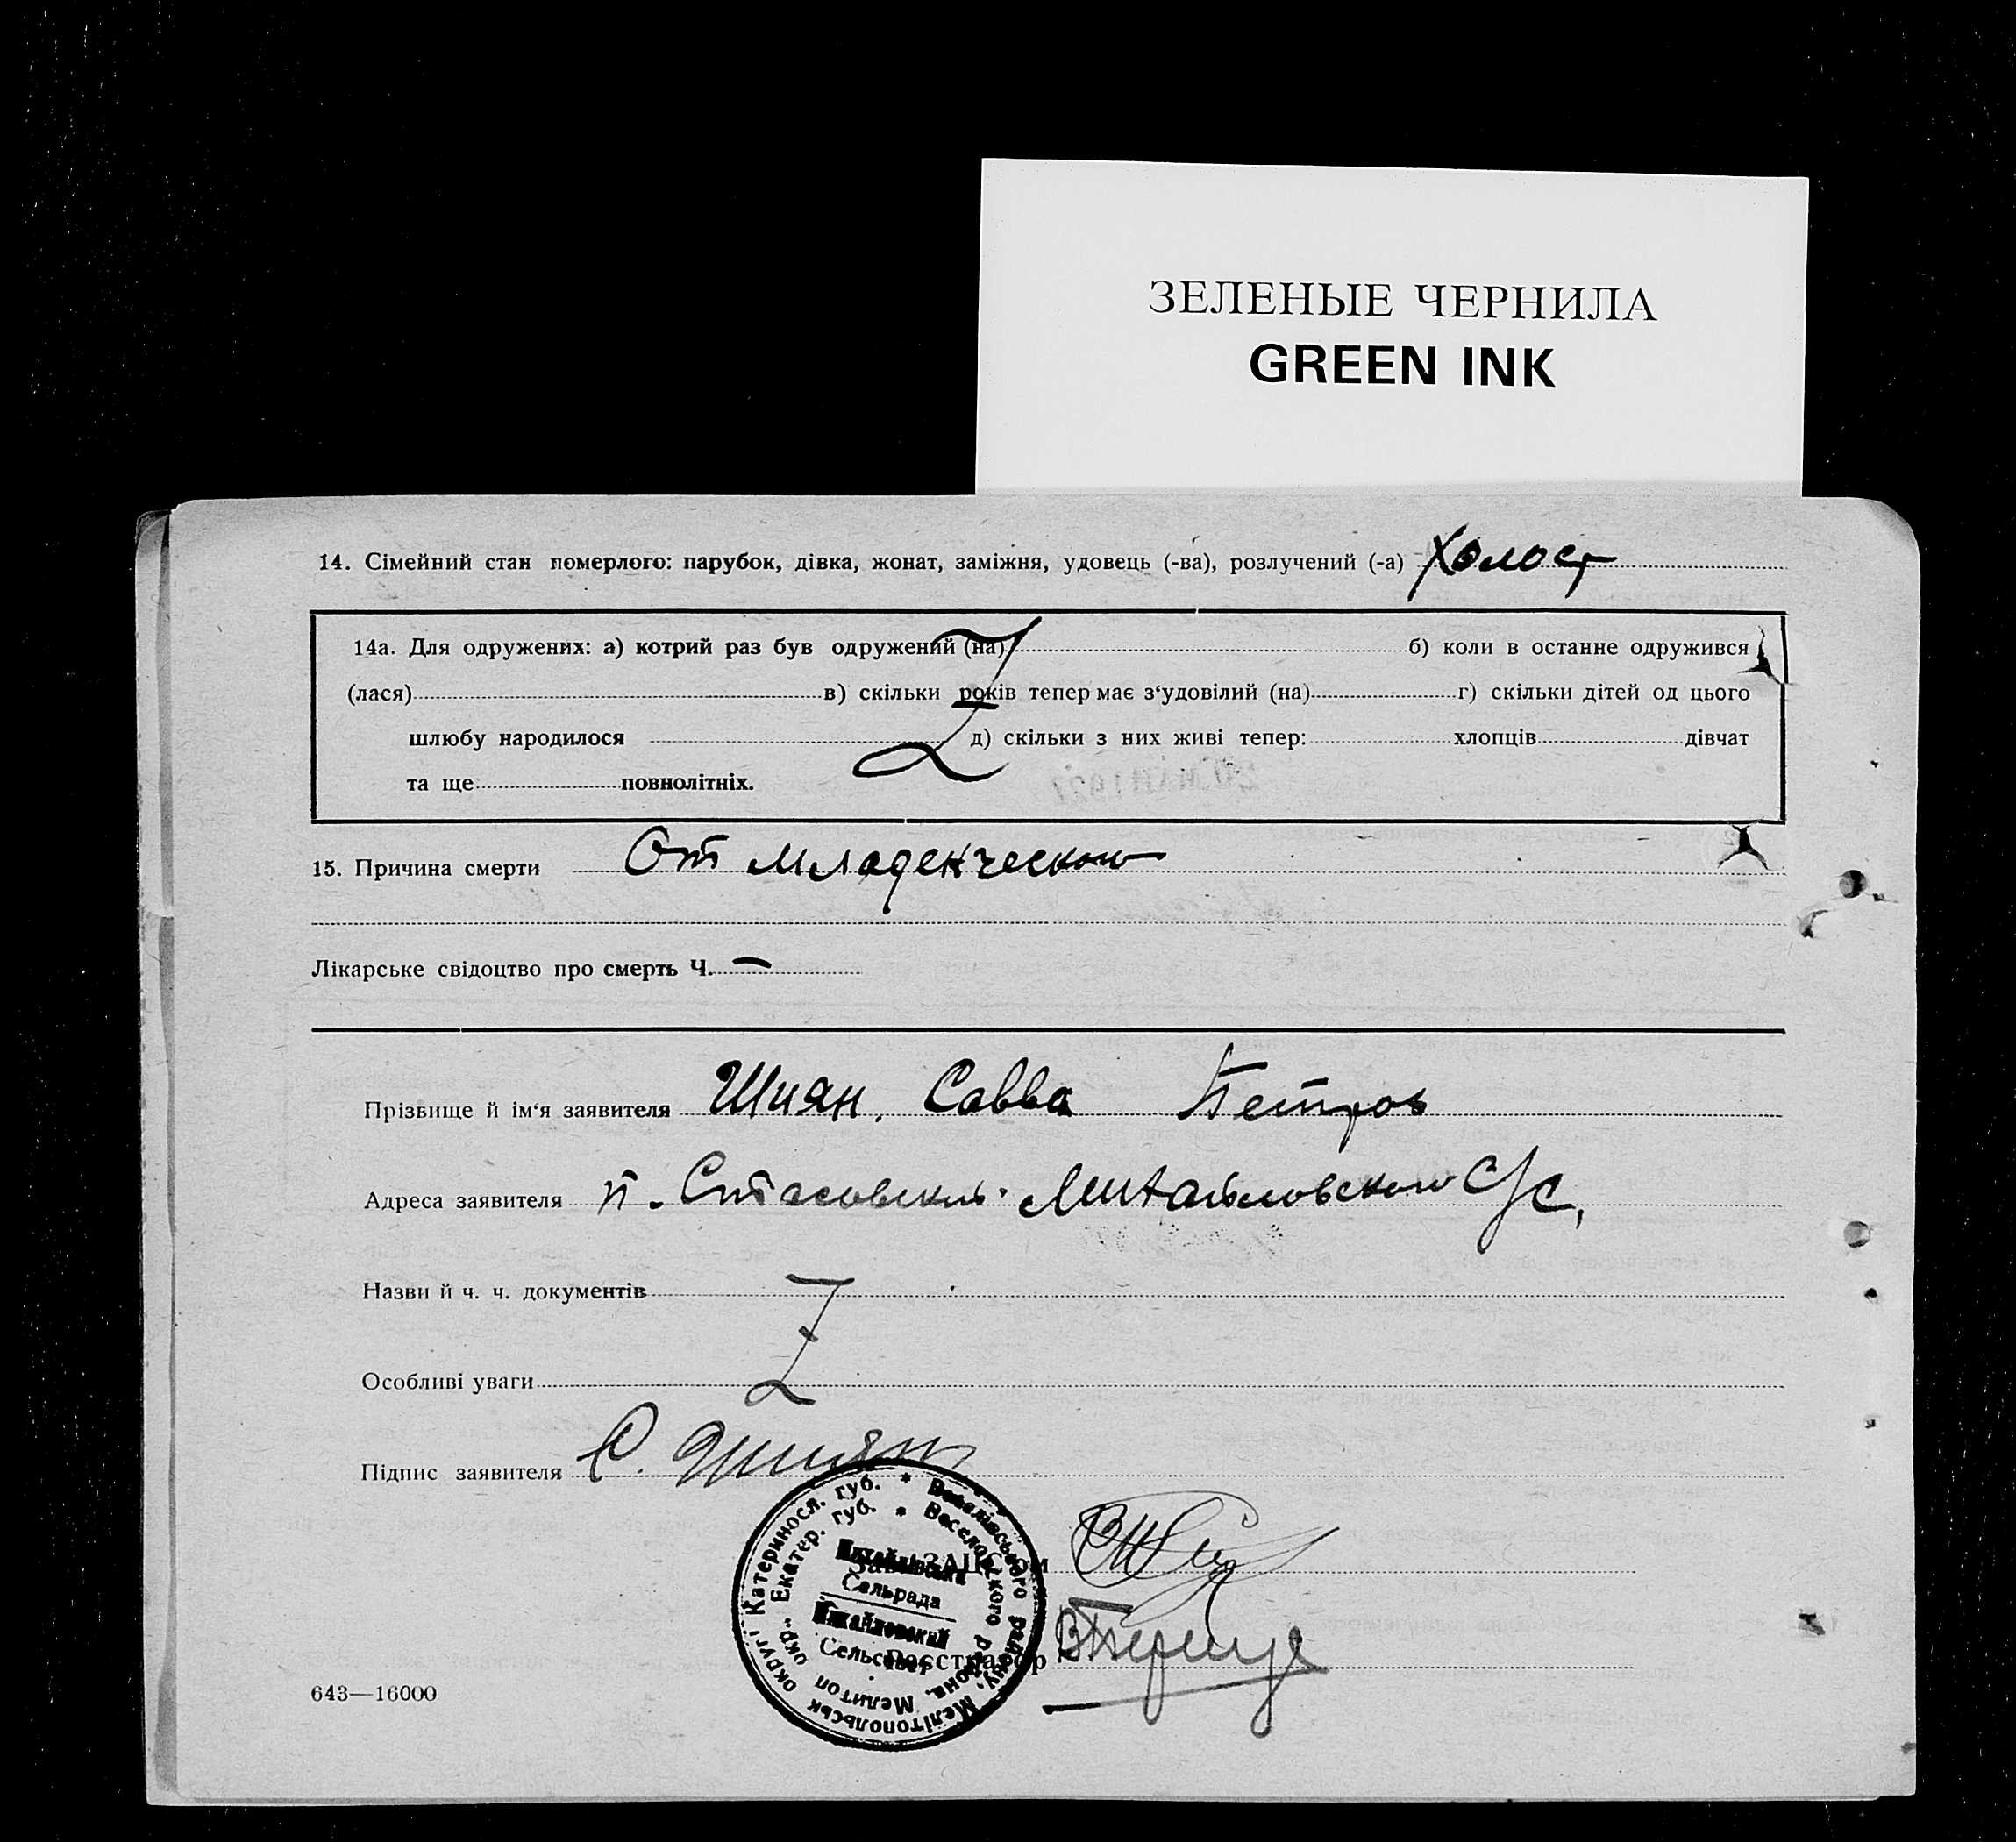 ЗЕЛЕНЫЕ ЧЕРНИЛА
GREEN INK
14. Сімейний стан померлого: парубок, дівка, жонат, заміжня, удовець (-ва), розлучений (-а) Холост
14а. Для одружених: а) котрий раз був одружений (на) б) коли в останне одружився
(лася) в) скільки років тепер має з‘удовілий (на) г) скільки дітей од цього
шлюбу народилося д) скільки з них живі тепер: хлопців дівчат
та ще повнолітніх.
15. Причина смерти От младенческого
Лікарське свідоцтво про смерть Ч. —
Прізвище й ім‘я заявителя Шиян. Савва Петров
Адреса заявителя п. Стасовский. Михайловского С/С,
Назви й ч. ч. документів
Особливі уваги
Підпис заявителя С. Шиян
Катериносл. губ. * Веселівського району, Мелітопольськ округі
Екатер. губ. * Веселовского района, Мелитоп окр.
Михайлівська
Сельрада
Михайловский
Сельсовет
Зав. ЗАЦС‘ом
Реєстратор
643—16000